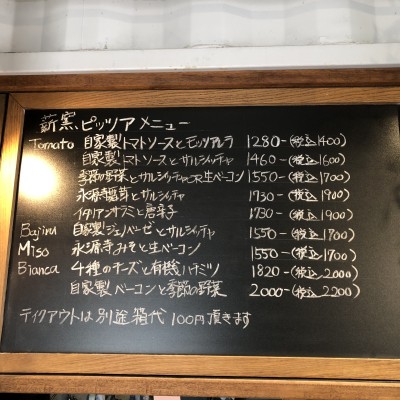 薪窯、ピッツァメニュー
Tomato 自家製トマトソースとモッツァレラ 1280-(税込1400)
自家製トマトソースとサルシッチャ 1460-(税込1600)
季節の野菜とサルシッチャOR生ベーコン 1550-(税込1700)
永源寺舞茸とサルシッチャ 1730-(税込1900)
イタリアンサラミと唐辛子 1730-(税込1900)
Bajiru 自家製ジェノベーゼとサルシッチャ 1550-(税込1700)
Miso 永源寺みそと生ベーコン 1550-(税込1700)
Bianca 4種のチーズと有機ハチミツ 1820-(税込2000)
自家製ベーコンと季節の野菜 2000-(税込2200)
テイクアウトは別途箱代100円頂きます